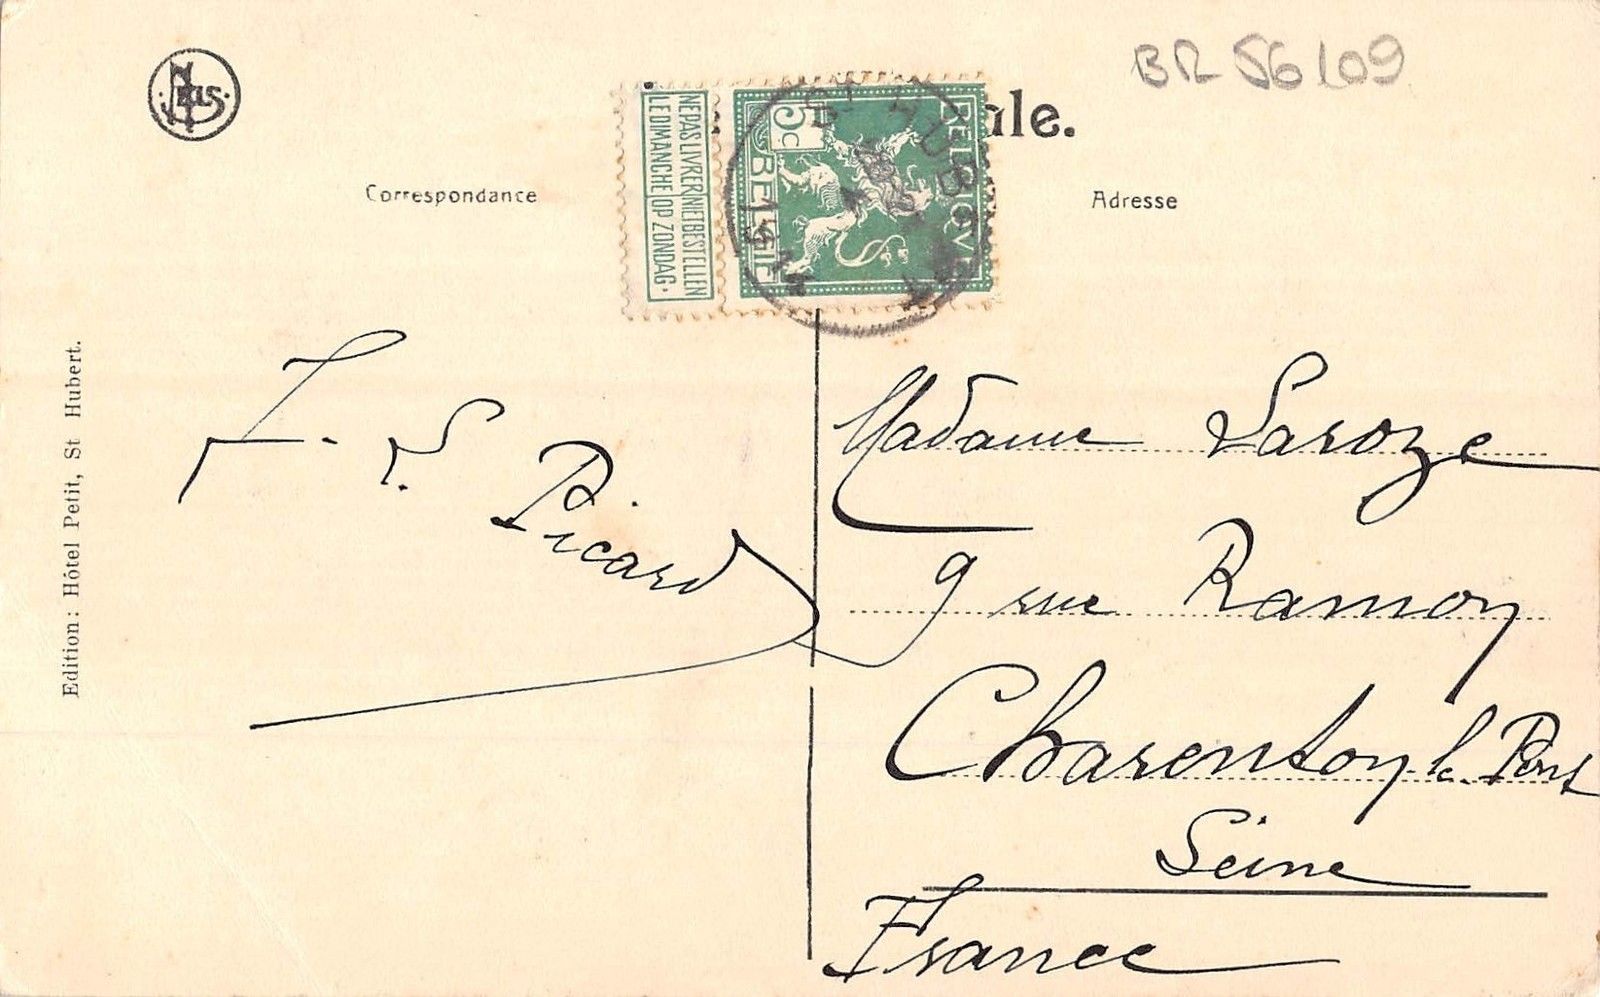 Nels
BR 56109
ale.
Correspondance
Adresse
NE PAS LIVRER NIET BESTELLEN
LE DIMANCHE OP ZONDAG.
5c
BELGIQVE
BELGIE
ST HUBERT
Edition: Hôtel Petit, St Hubert.
F. L. Picard
Madame Laroze
9 rue Ramon
Charenton le Pont
Seine
France